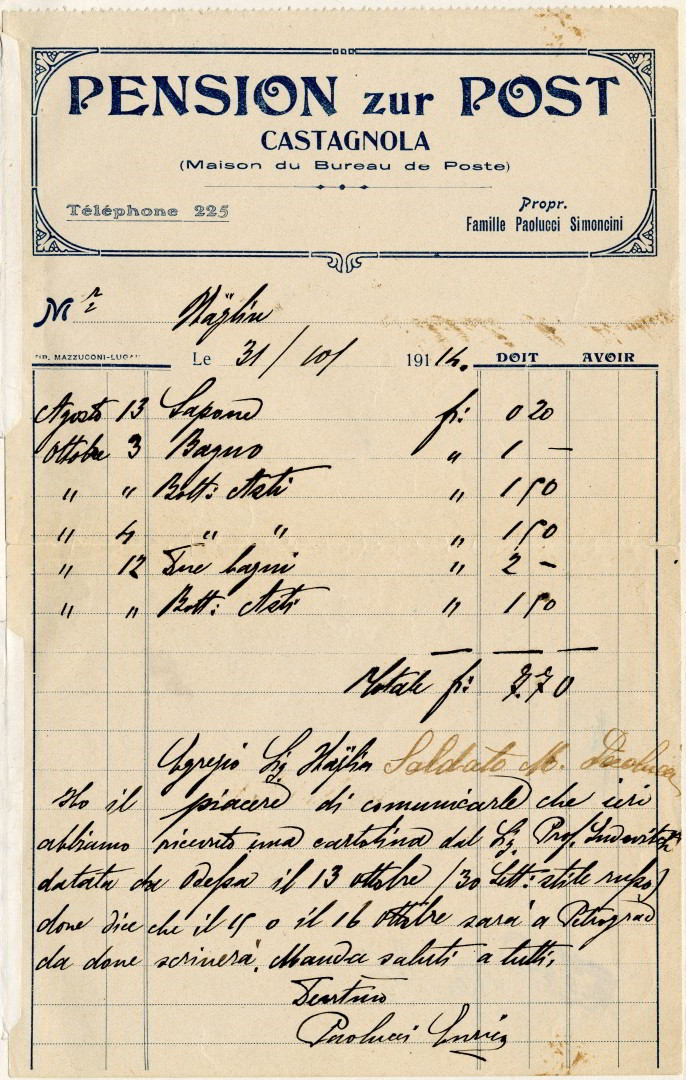 PENSION zur POST
CASTAGNOLA
(Maison du Bureau de Poste)
Téléphone 225
Propr.
Famille Paolucci Simoncini
Mr
TIP. MAZZUCONI-LUGANO
Le 31/10/ 1914. DOIT AVOIR
Agosto 13 Sapone fr: 0 20
Ottobre 3 Bagno " 1 —
" " Bott: Asti " 1 50
" 4 " " " 1 50
" 12 Due bagni " 2 —
" " Bott: Asti " 1 50
Totale fr: 7.70
Egregio Sig. Saldato
Ho il piacere di comunicarle che ieri
abbiamo ricevuto una cartolina dal Sig. Prof.
datata da Odessa il 13 ottobre (30 Sett: stile russo)
dove dice che il 15 o il 16 Ottobre sarà a Petrograd
da dove scriverà. Manda saluti a tutti.
Paolucci Enrico